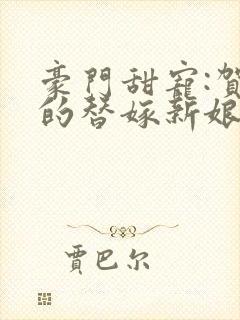 豪門甜寵:賀
的替嫁新娘
賈巴尔